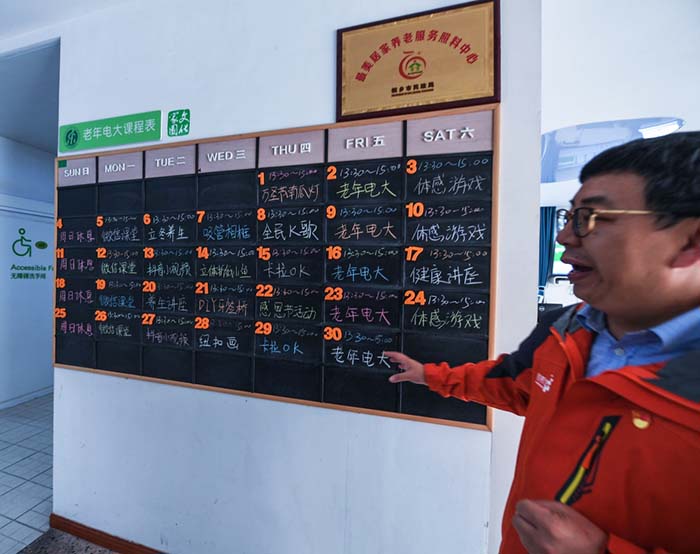 最美居家养老服务照料中心
桐乡市民政局
老年电大课程表
家文
园化
SUN 日 MON 一 TUE 二 WED 三 THU 四 FRI 五 SAT 六
1 13:30~15:00 2 13:30~15:00 3 13:30~15:00
万圣节南瓜灯 老年电大 体感游戏
4 5 13:30~15:00 6 13:30~15:00 7 13:30~15:00 8 13:30~15:00 9 13:30~15:00 10 13:30~15:00
周日休息 微信课堂 立冬养生 吸管相框 全民K歌 老年电大 体感游戏
11 12 13:30~15:00 13 13:30~15:00 14 13:30~15:00 15 13:30~15:00 16 13:30~15:00 17 13:30~15:00
周日休息 微信课堂 抖音小视频 卡拉OK 老年电大 健康讲座
18 19 13:30~15:00 20 13:30~15:00 21 13:30~15:00 22 13:30~15:00 23 13:30~15:00 24 13:30~15:00
周日休息 微信课堂 养生讲座 感恩节活动 老年电大 体感游戏
25 26 13:30~15:00 27 13:30~15:00 28 13:30~15:00 29 13:30~15:00 30 13:30~15:00
周日休息 微信课堂 抖音小视频 纽扣画 卡拉OK 老年电大
Accessible
无障碍洗手间